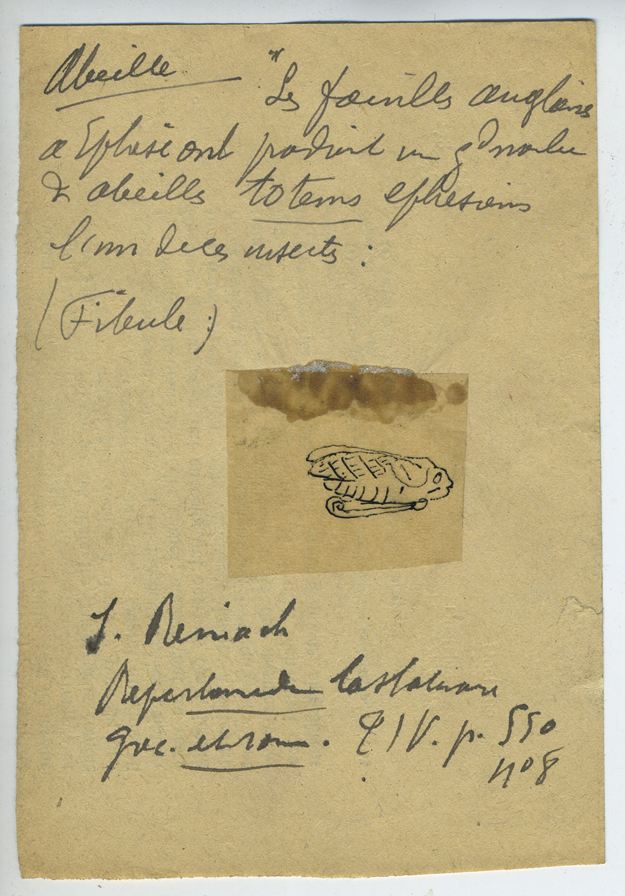 Abeille — "Les fouilles anglaises
a Ephese ont produit un gd nombre
d abeilles totems ephesiens
l'un de ces insects :
(Fibule)
S. Reinach
Repertoire de la statuaire
grec. et rom. T IV. p. 550
n° 8